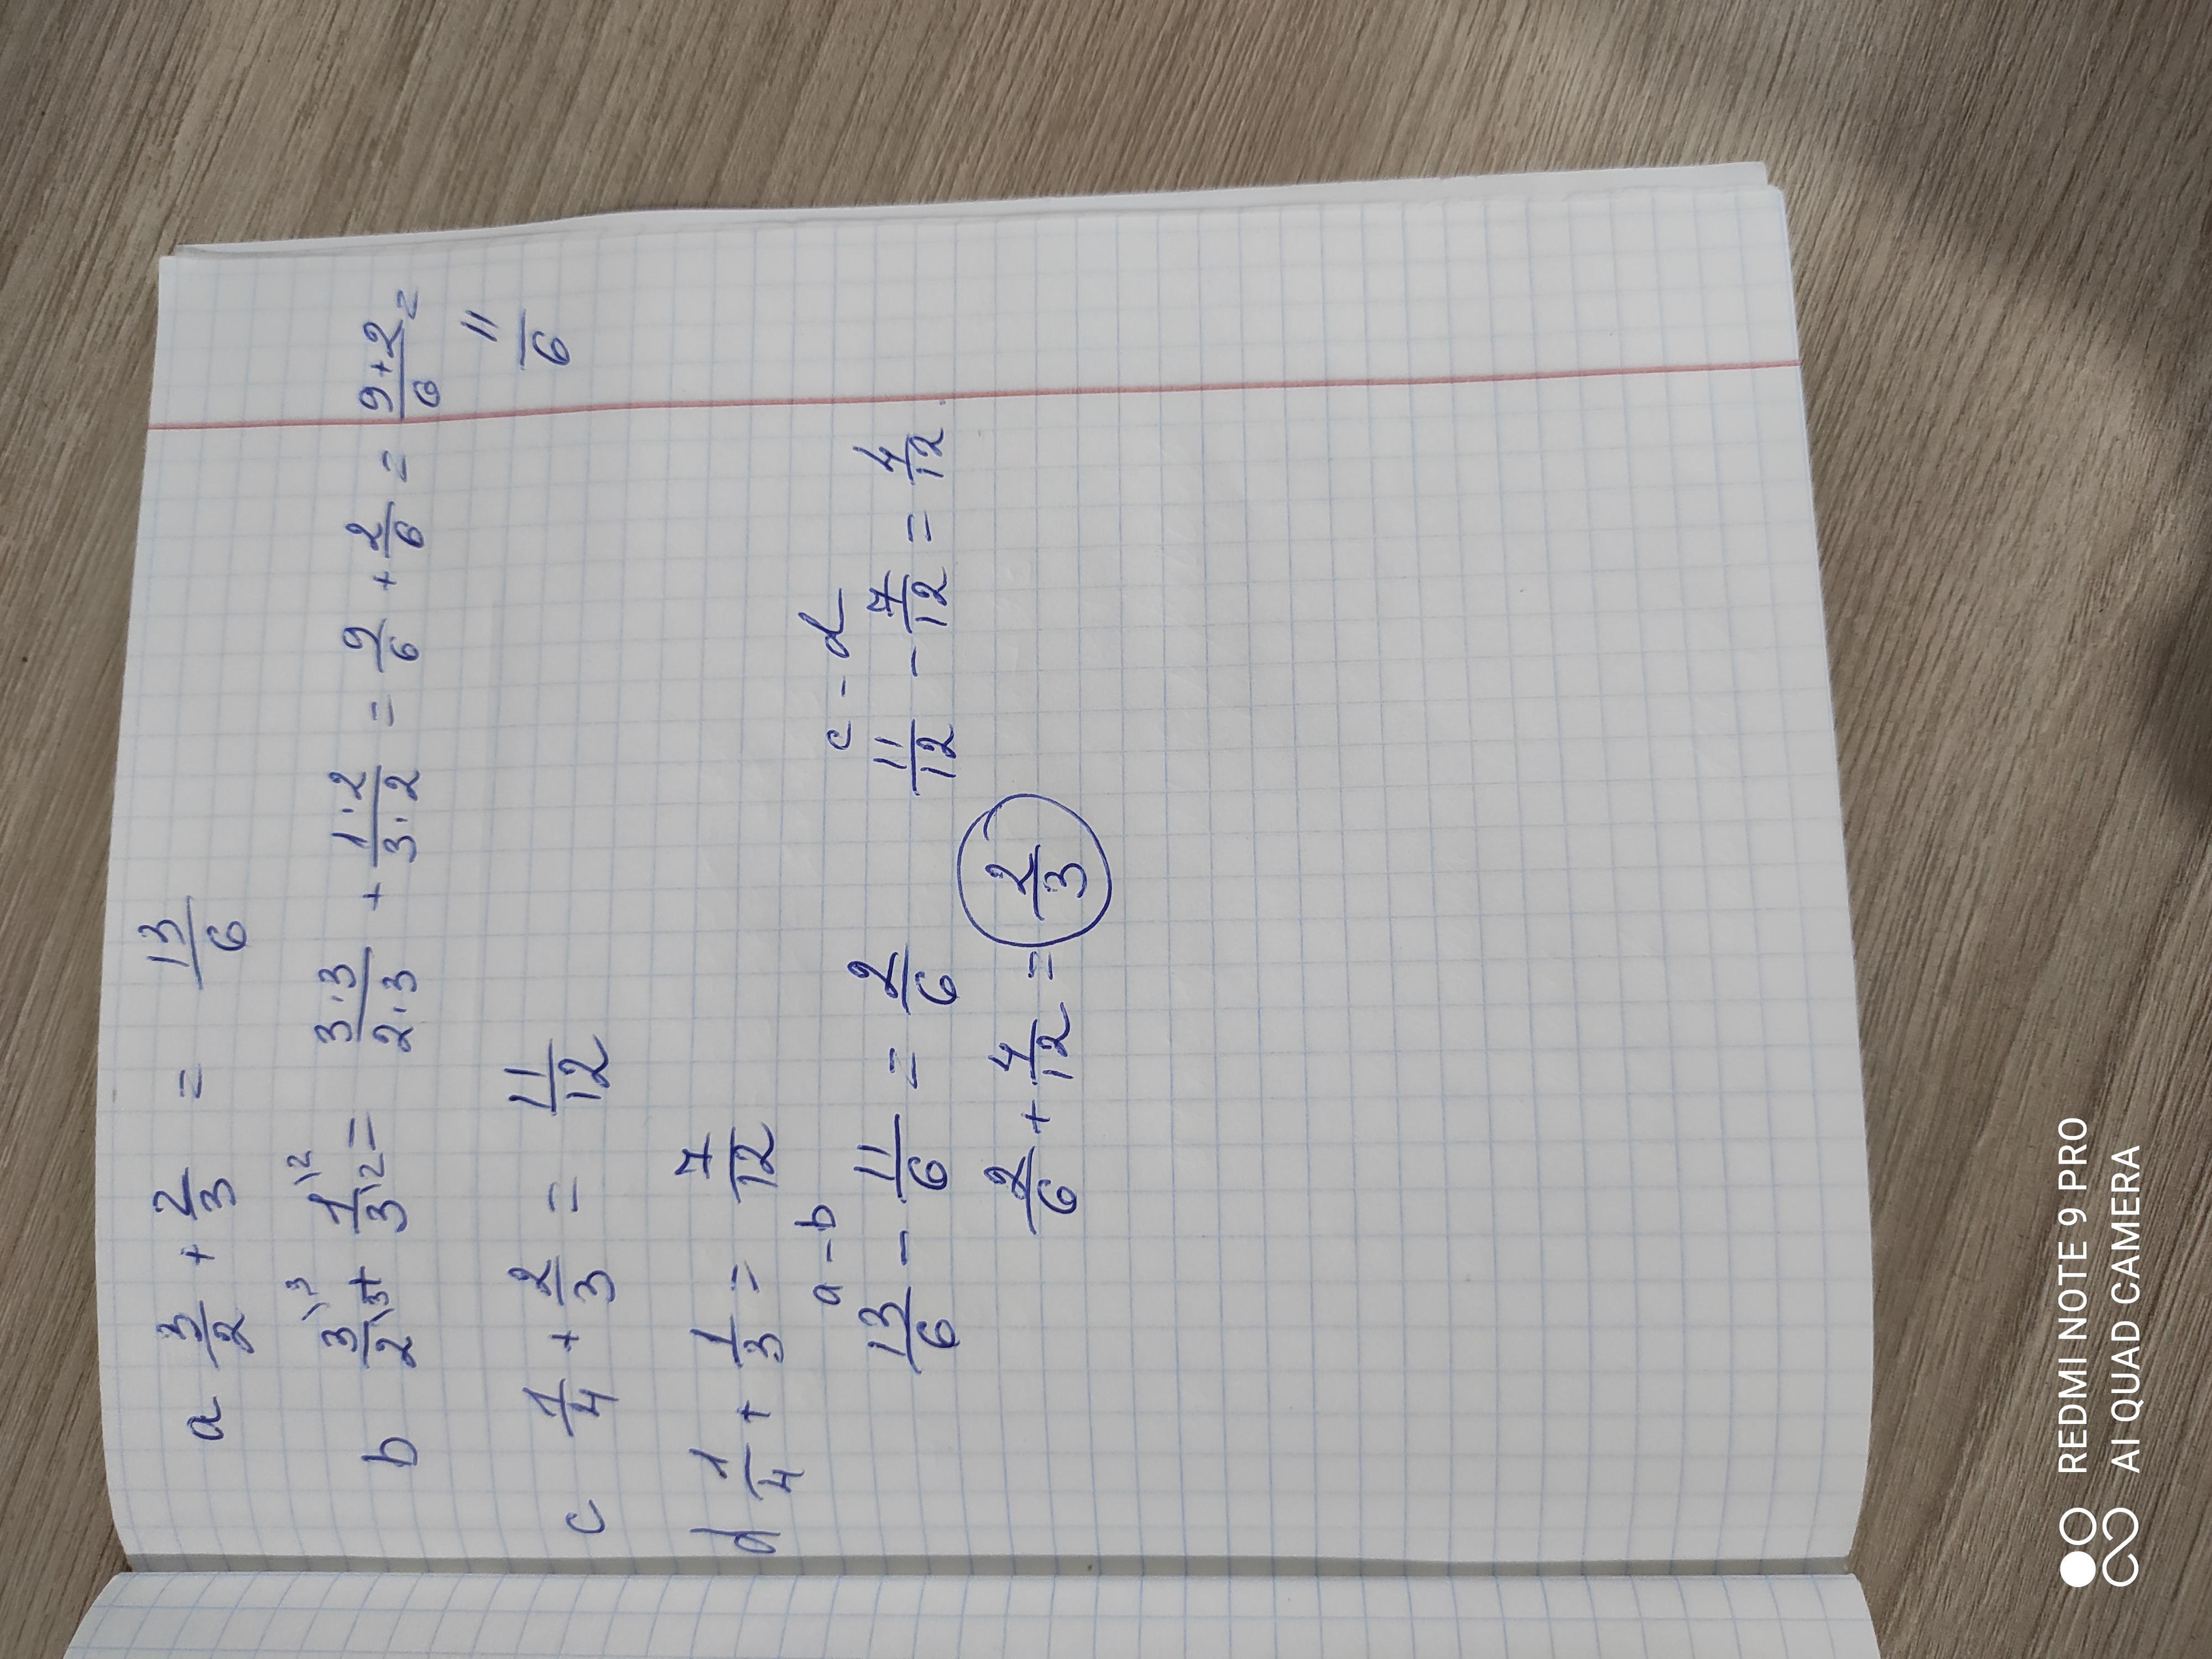 a 3/2 + 2/3 = 13/6
b 3\3/2\3 + 1\2/3\2 = 3·3/2·3 + 1·2/3·2 = 9/6 + 2/6 = 9+2/6 =
11/6
c 1/4 + 2/3 = 11/12
d 1/4 + 1/3 = 7/12
a-b c-d
13/6 - 11/6 = 2/6 11/12 - 7/12 = 4/12
2/6 + 4/12 = 2/3
REDMI NOTE 9 PRO
AI QUAD CAMERA